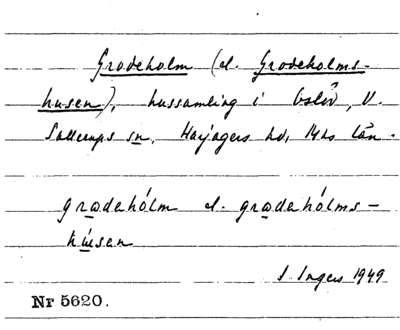 Grodeholm (el. Grodeholms-
husen), hussamling i Öslöv, V.
Sallerups sn, Harjagers hd, Mhs län.
grodehólm el. grodehólms-
húsen
I. Ingers 1949
Nr 5620.